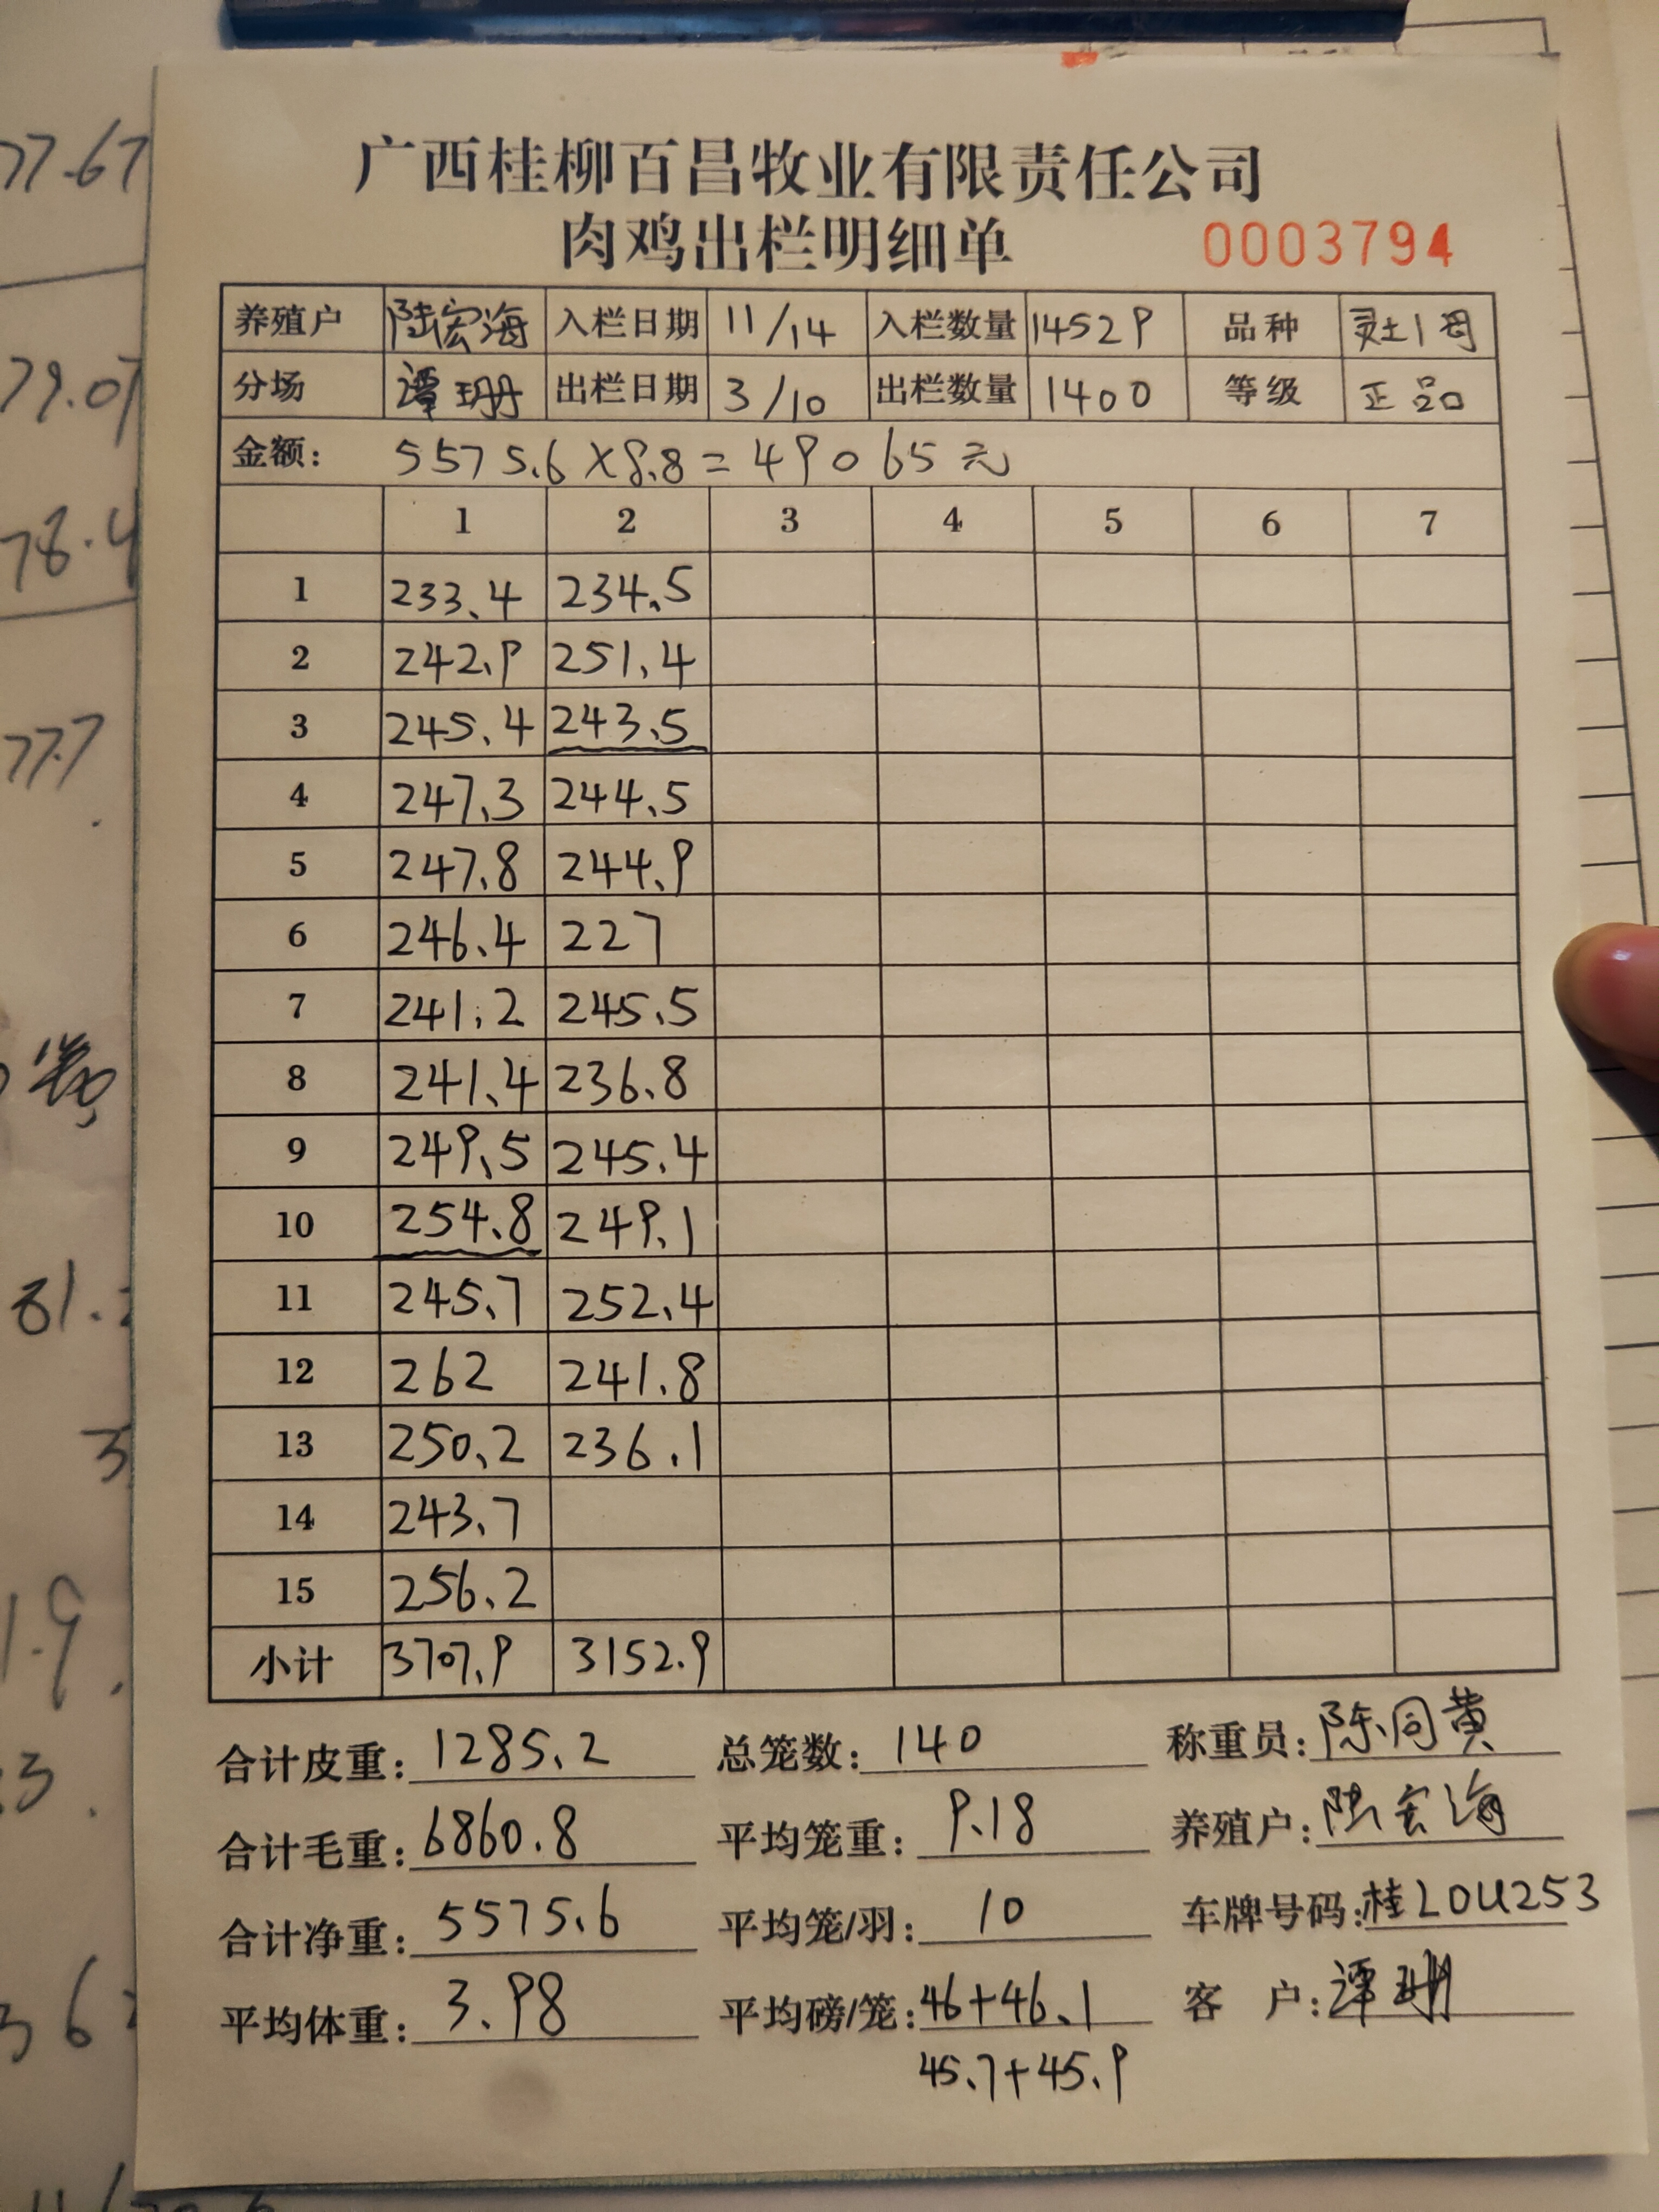 广西桂柳百昌牧业有限责任公司
肉鸡出栏明细单 0003794
养殖户 陆宏海 入栏日期 11/14 入栏数量 14529 品种 灵土1母
分场 谭珊 出栏日期 3/10 出栏数量 1400 等级 正品
金额: 5575.6×8.8=49065元
1 2 3 4 5 6 7
1 233.4 234.5
2 242.9 251.4
3 245.4 243.5
4 247.3 244.5
5 247.8 244.9
6 246.4 227
7 241.2 245.5
8 241.4 236.8
9 249.5 245.4
10 254.8 249.1
11 245.7 252.4
12 262 241.8
13 250.2 236.1
14 243.7
15 256.2
小计 3707.9 3152.9
合计皮重: 1285.2 总笼数: 140 称重员: 陈同黄
合计毛重: 6860.8 平均笼重: 9.18 养殖户: 陆宏海
合计净重: 5575.6 平均笼/羽: 10 车牌号码: 桂L0U253
平均体重: 3.98 平均磅/笼: 46+46.1 客 户: 谭珊
45.7+45.9
77.67
79.07
78.4
77.7